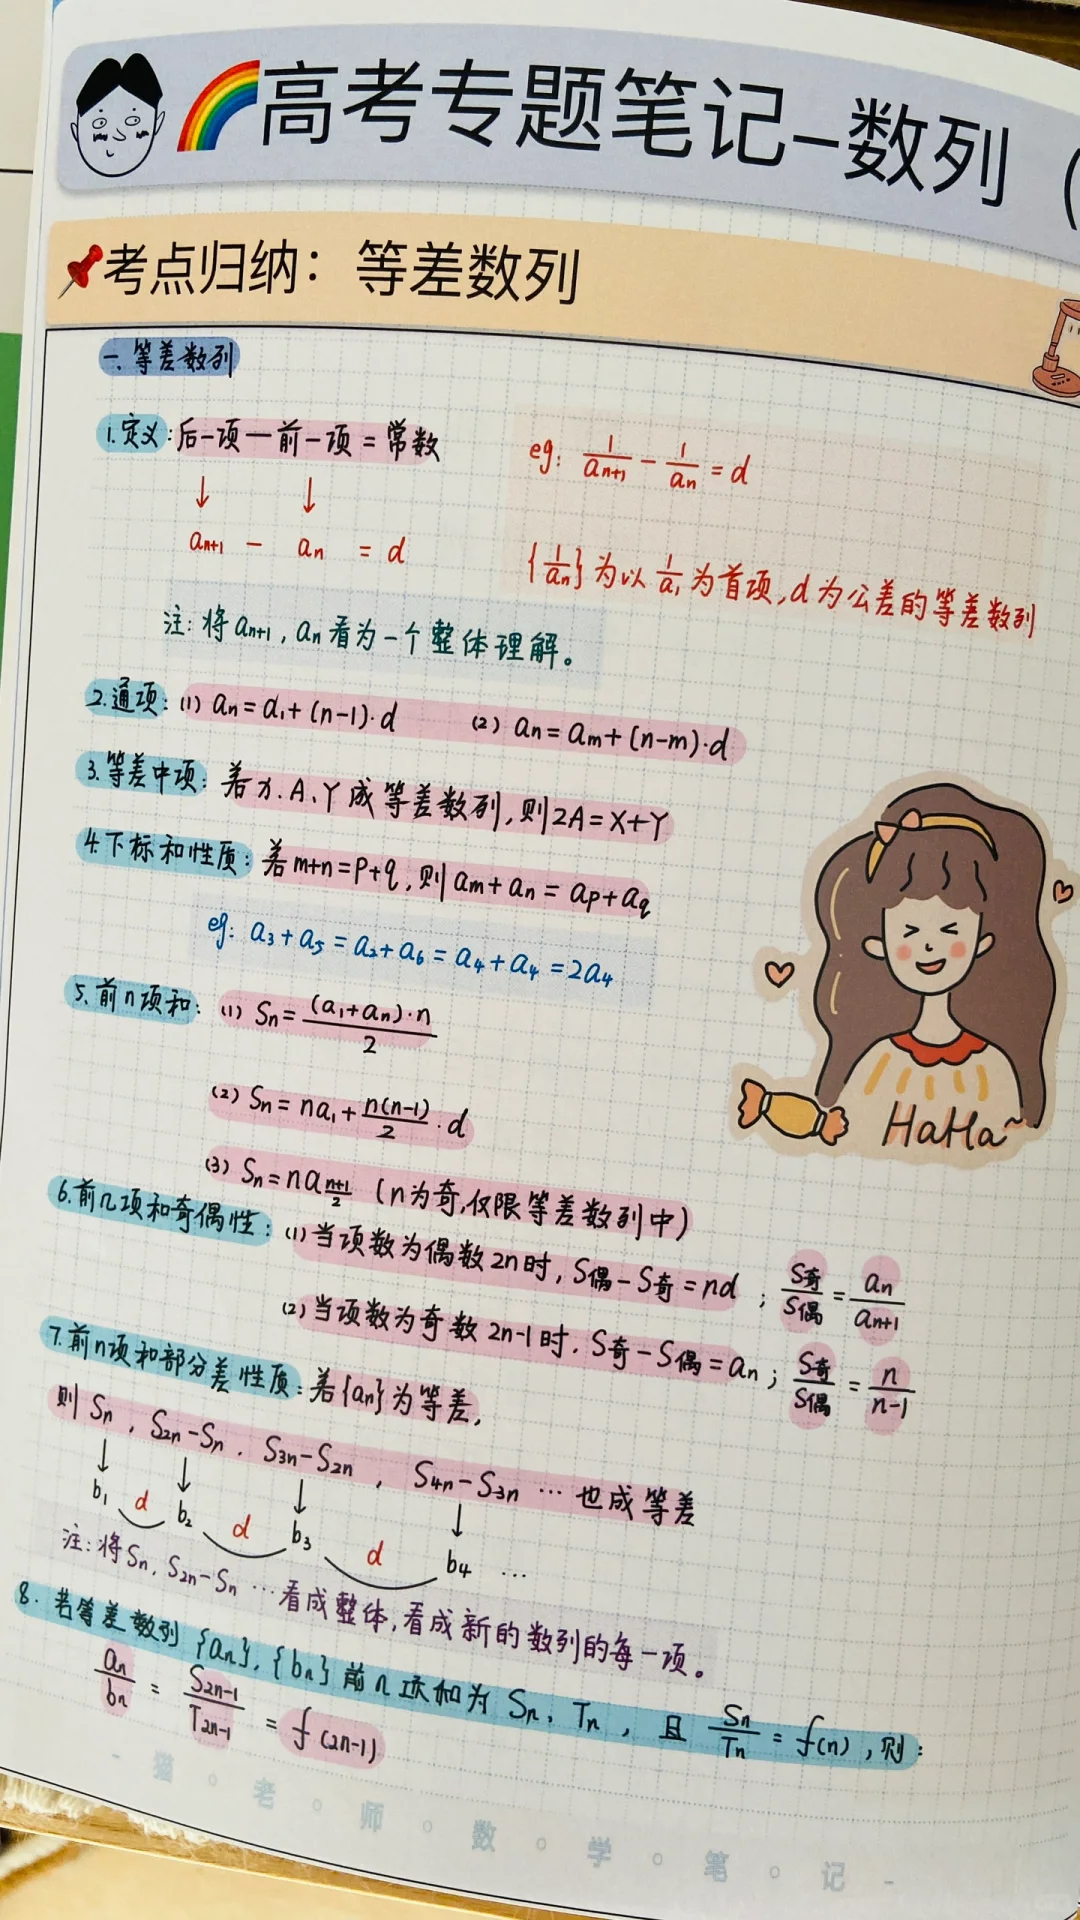 高考专题笔记-数列（
考点归纳：等差数列
一.等差数列
1.定义：后一项一前一项=常数
↓ ↓
aₙ₊₁ - aₙ = d
eg: 1/aₙ₊₁ - 1/aₙ = d
{1/aₙ}为以1/a₁为首项,d为公差的等差数列
注:将aₙ₊₁,aₙ看为一个整体理解。
2.通项: (1) aₙ=a₁+(n-1)·d (2) aₙ=aₘ+(n-m)·d
3.等差中项: 若x、A、Y成等差数列,则2A=X+Y
4.下标和性质: 若m+n=p+q,则aₘ+aₙ=aₚ+a_q
eg: a₃+a₅=a₂+a₆=a₄+a₄=2a₄
5.前n项和: (1) Sₙ=(a₁+aₙ)·n/2
(2) Sₙ=na₁+n(n-1)/2·d
(3) Sₙ=na_(n+1)/2 (n为奇,仅限等差数列中)
6.前n项和奇偶性: (1)当项数为偶数2n时,S偶-S奇=nd ; S奇/S偶=aₙ/aₙ₊₁
(2)当项数为奇数2n-1时.S奇-S偶=aₙ; S奇/S偶=n/n-1
7.前n项和部分差性质:若{aₙ}为等差,
则Sₙ, S₂ₙ-Sₙ, S₃ₙ-S₂ₙ, S₄ₙ-S₃ₙ…也成等差
↓ ↓ ↓ ↓
b₁ d b₂ d b₃ d b₄ …
注:将Sₙ,S₂ₙ-Sₙ…看成整体,看成新的数列的每一项。
8.若等差数列{aₙ},{bₙ}前n项和为Sₙ,Tₙ,且Sₙ/Tₙ=f(n),则:
aₙ/bₙ=S₂ₙ₋₁/T₂ₙ₋₁=f(2n-1)
HaHa~
- 猫。老。师。数。学。笔。记 -